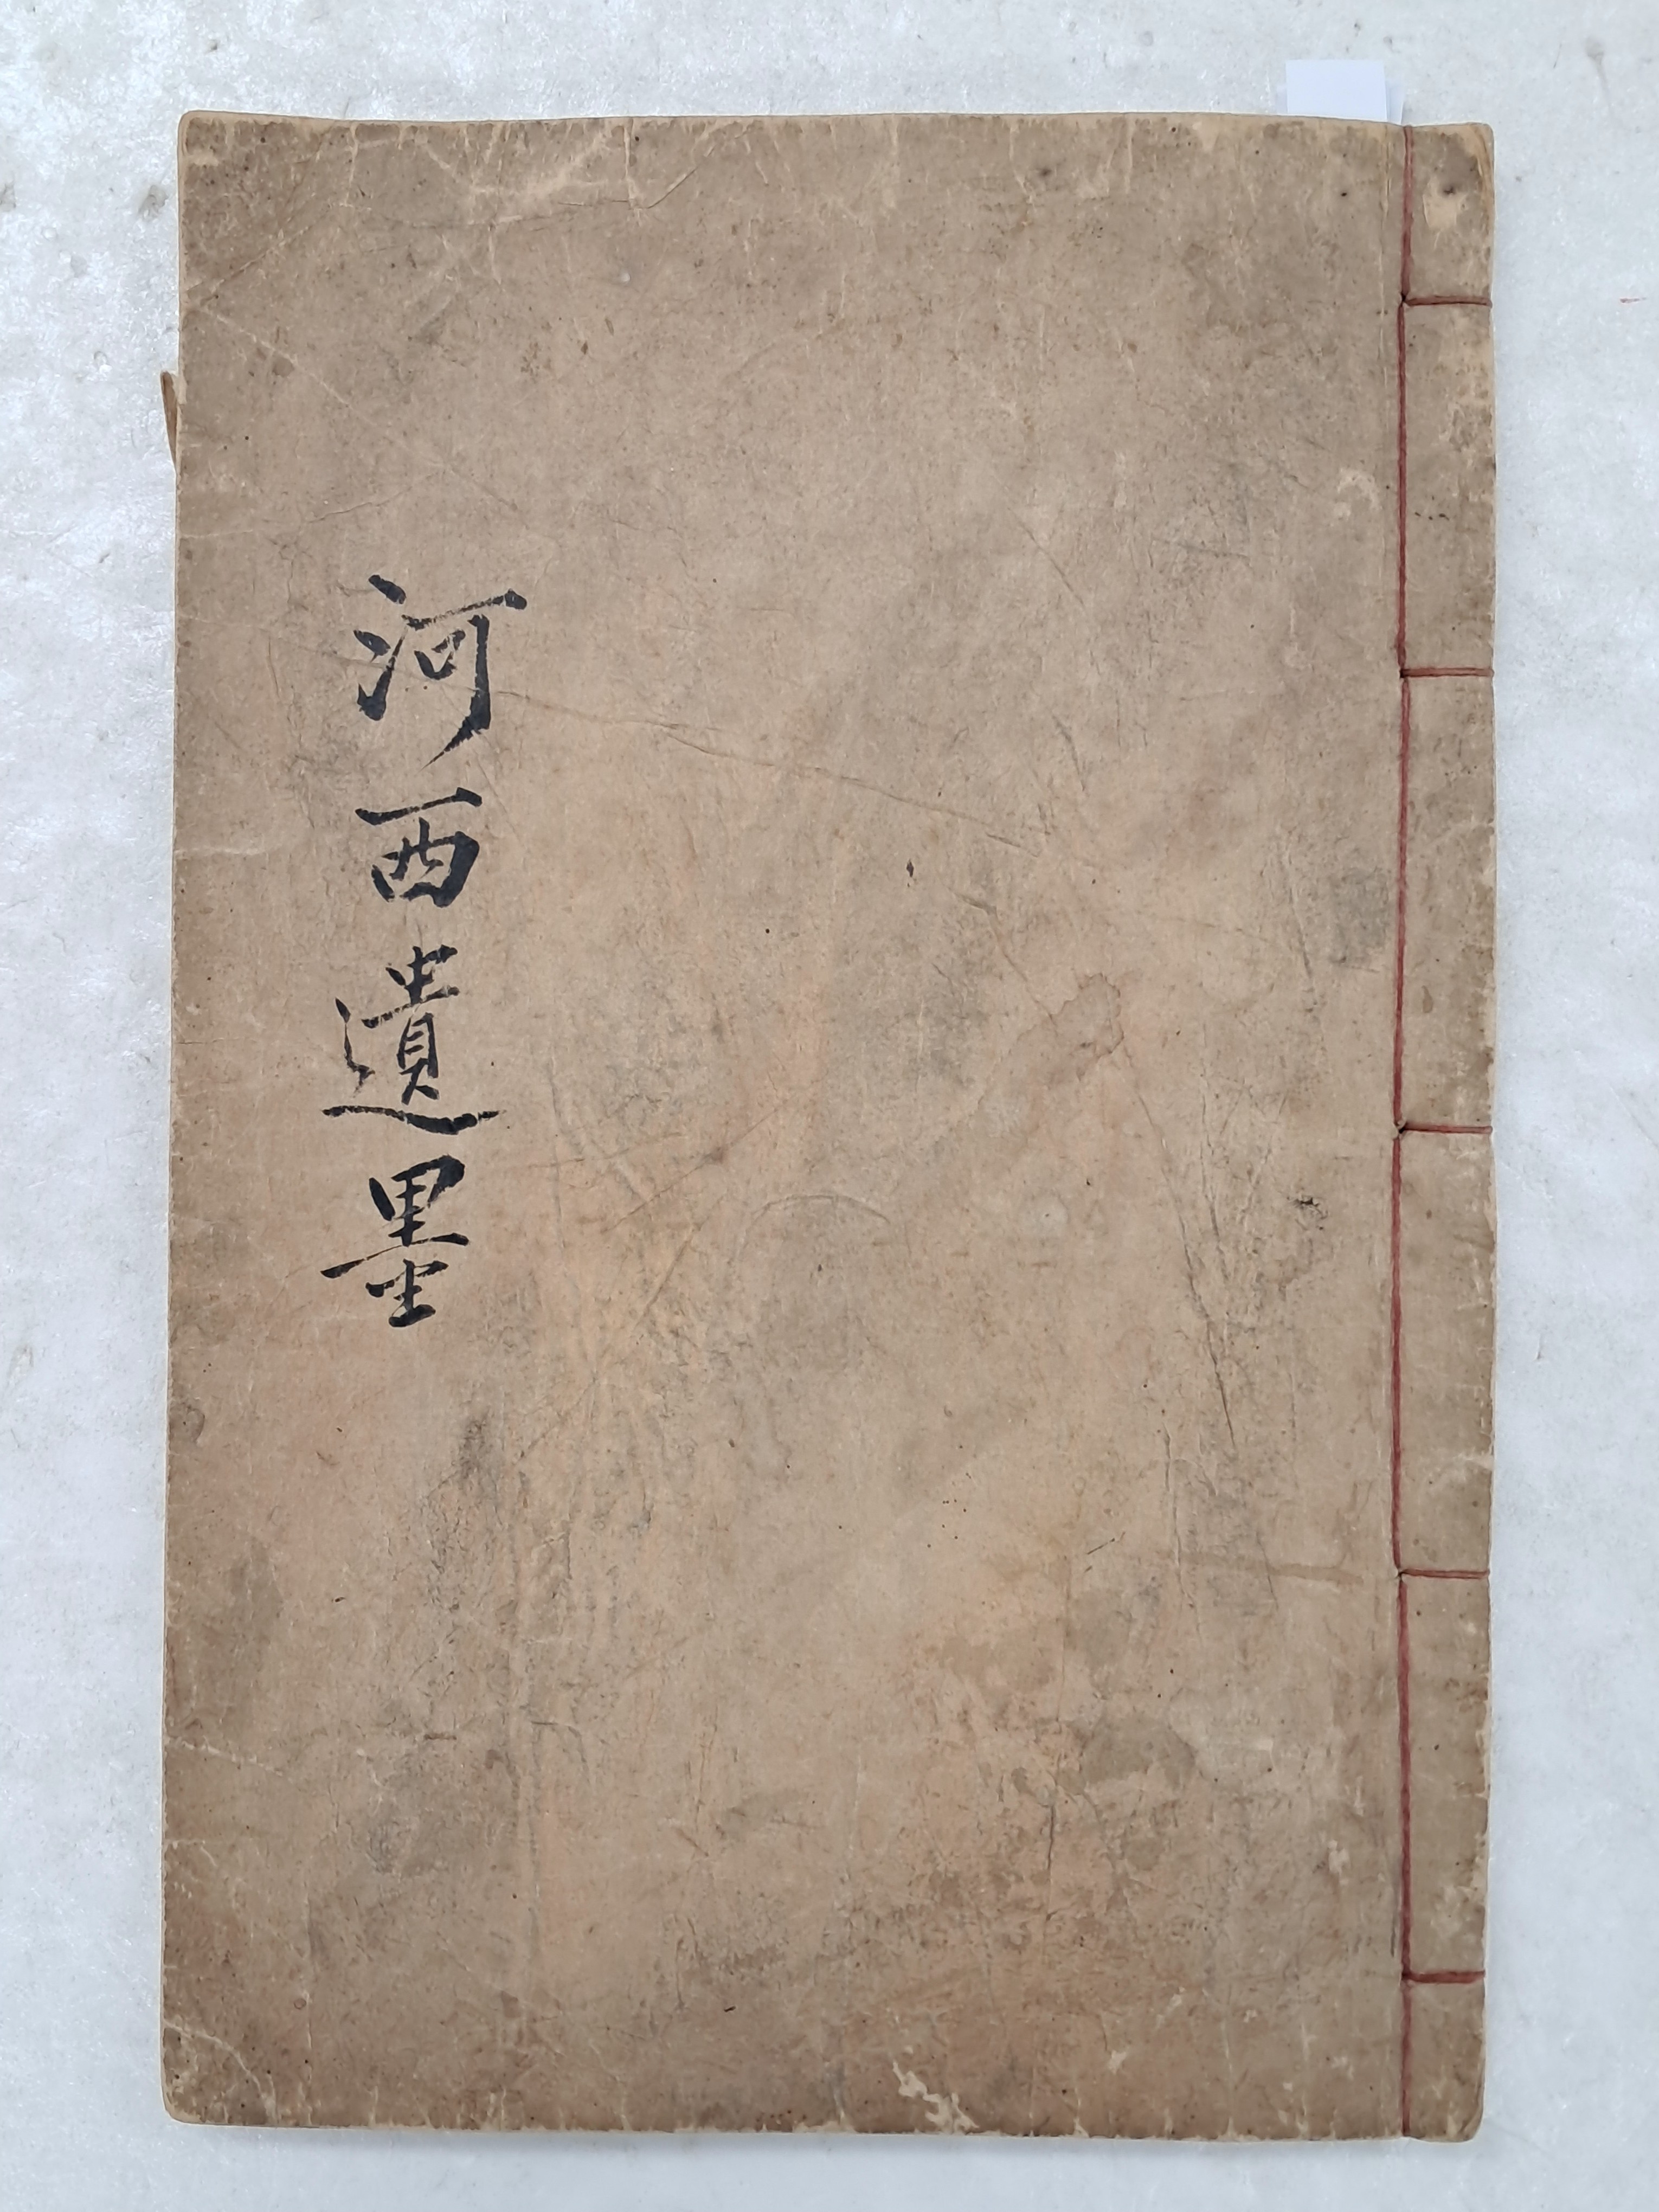 河西遺墨